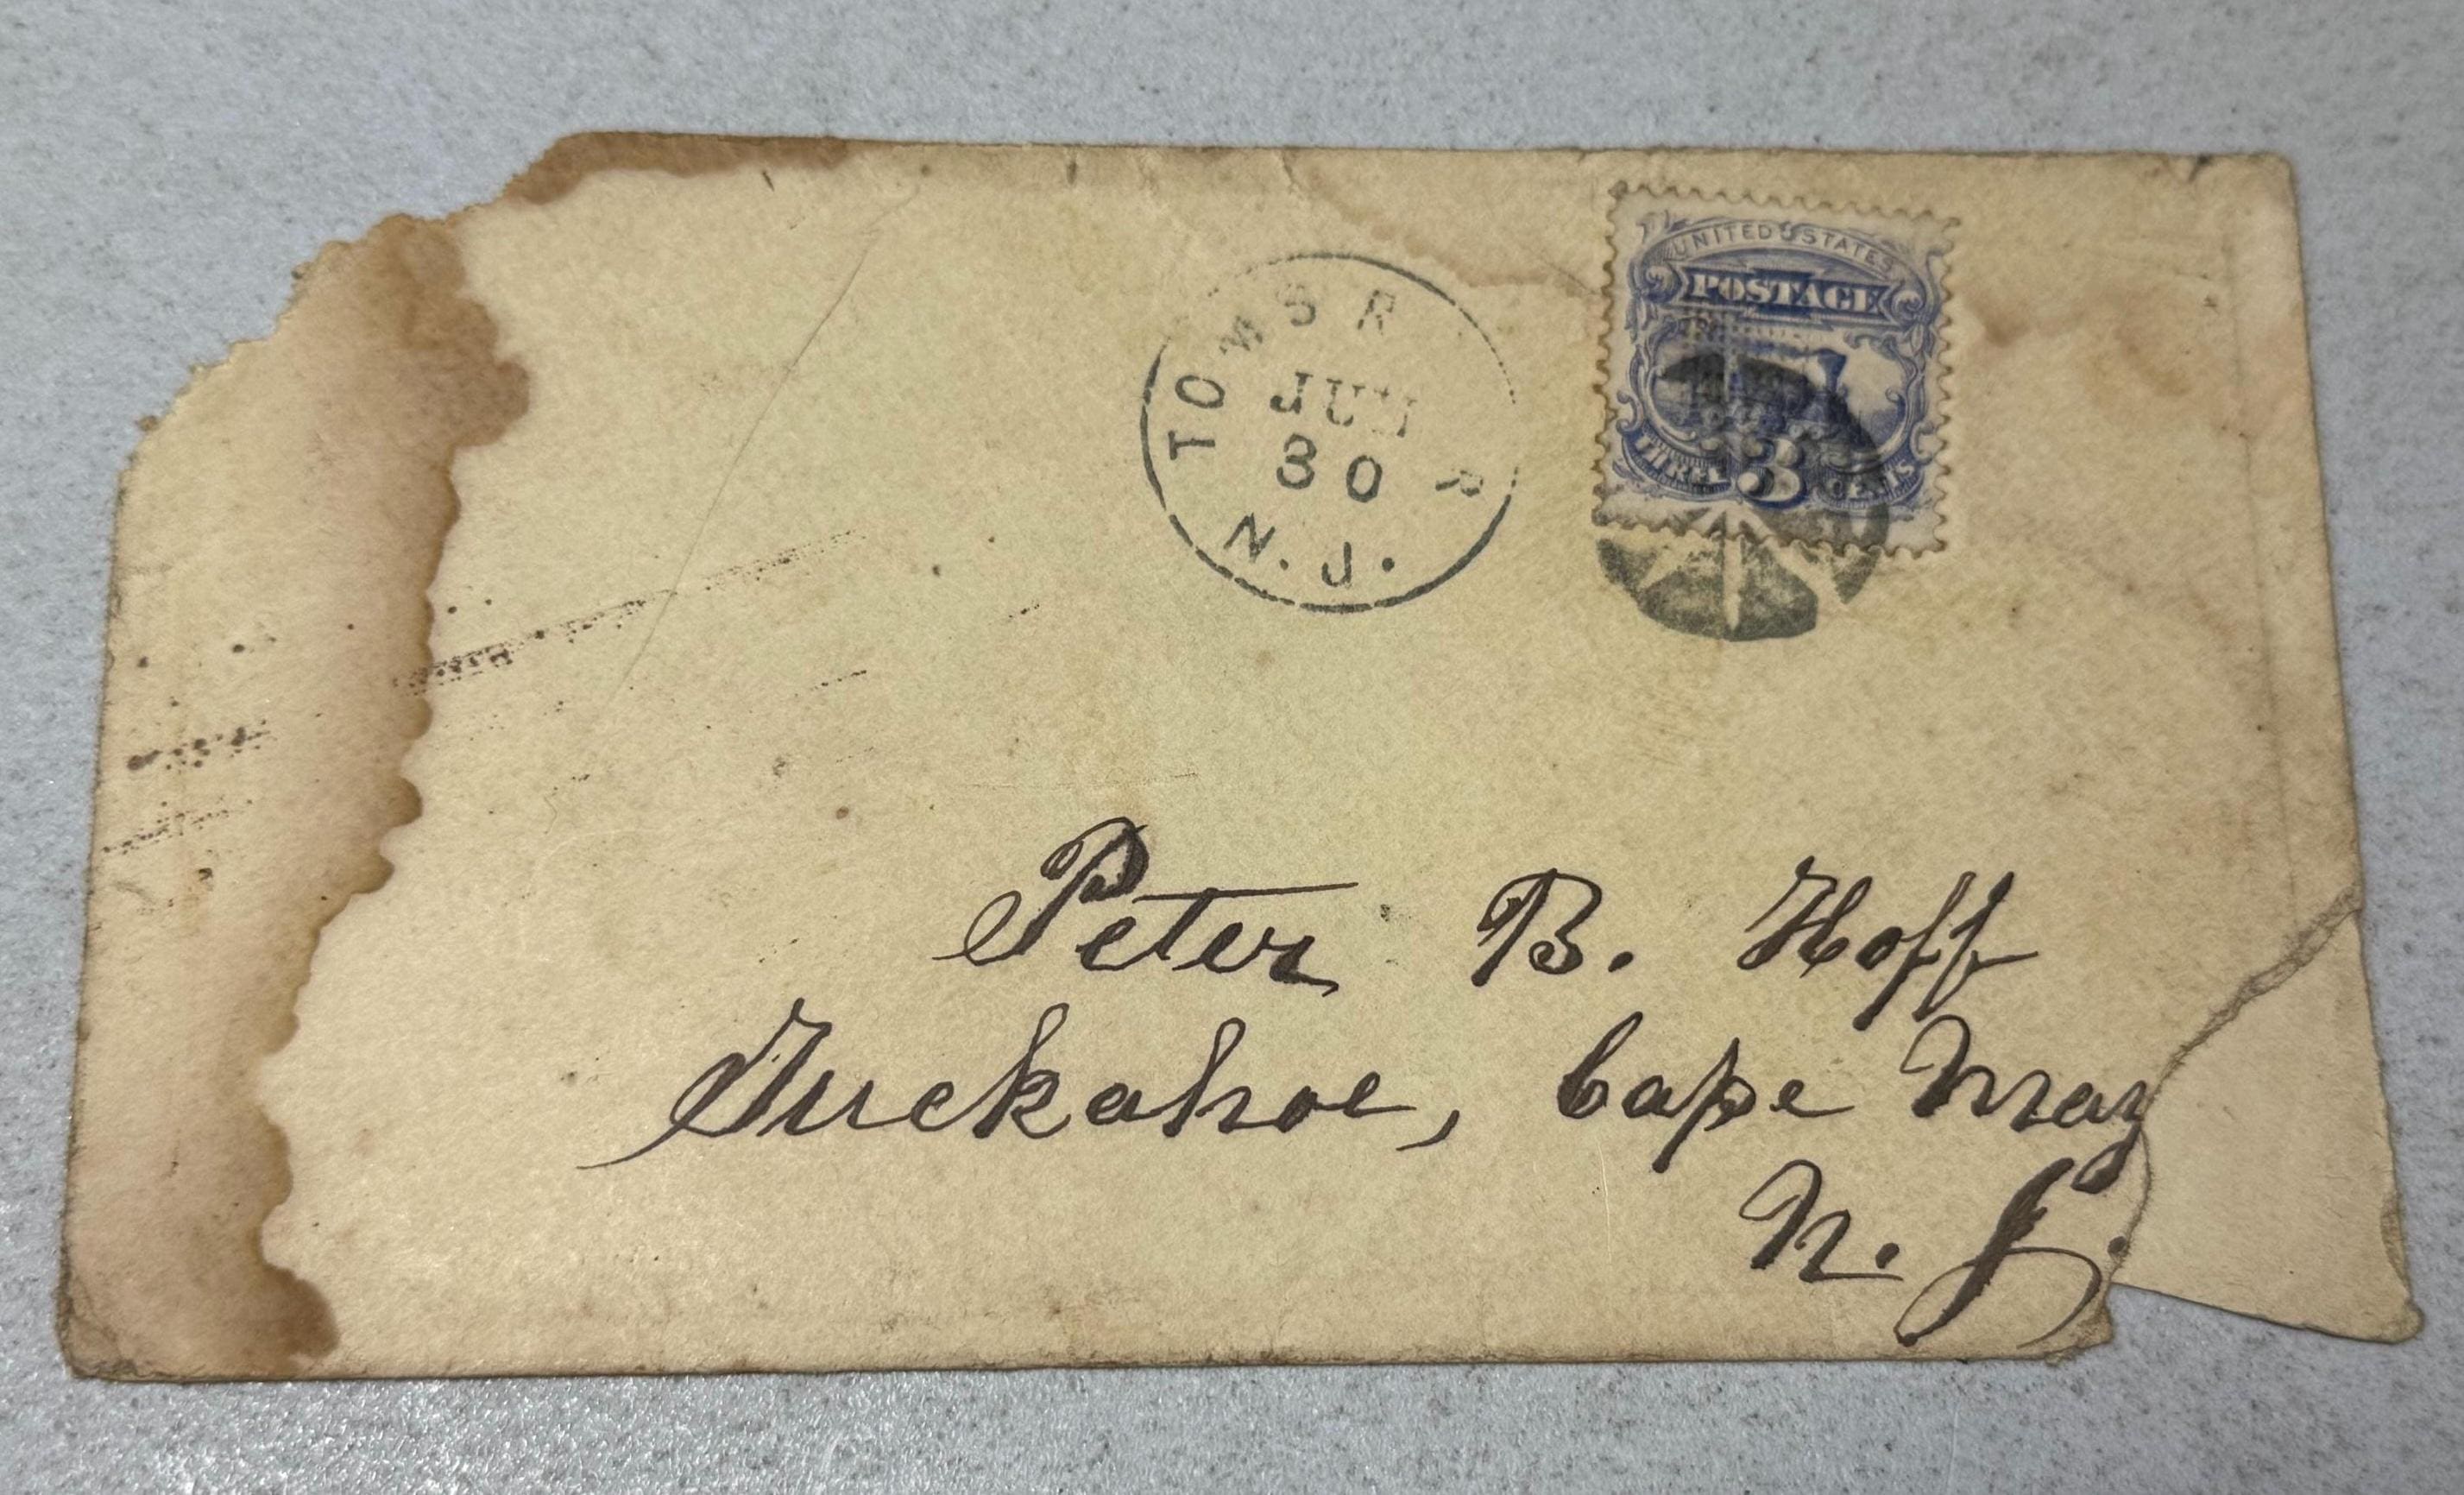 TOMS R R
JUN
30
N. J.
UNITED STATES
POSTAGE
THREE 3 CENTS
Peter B. Hoff
Tuckahoe, Cape May
N. J.